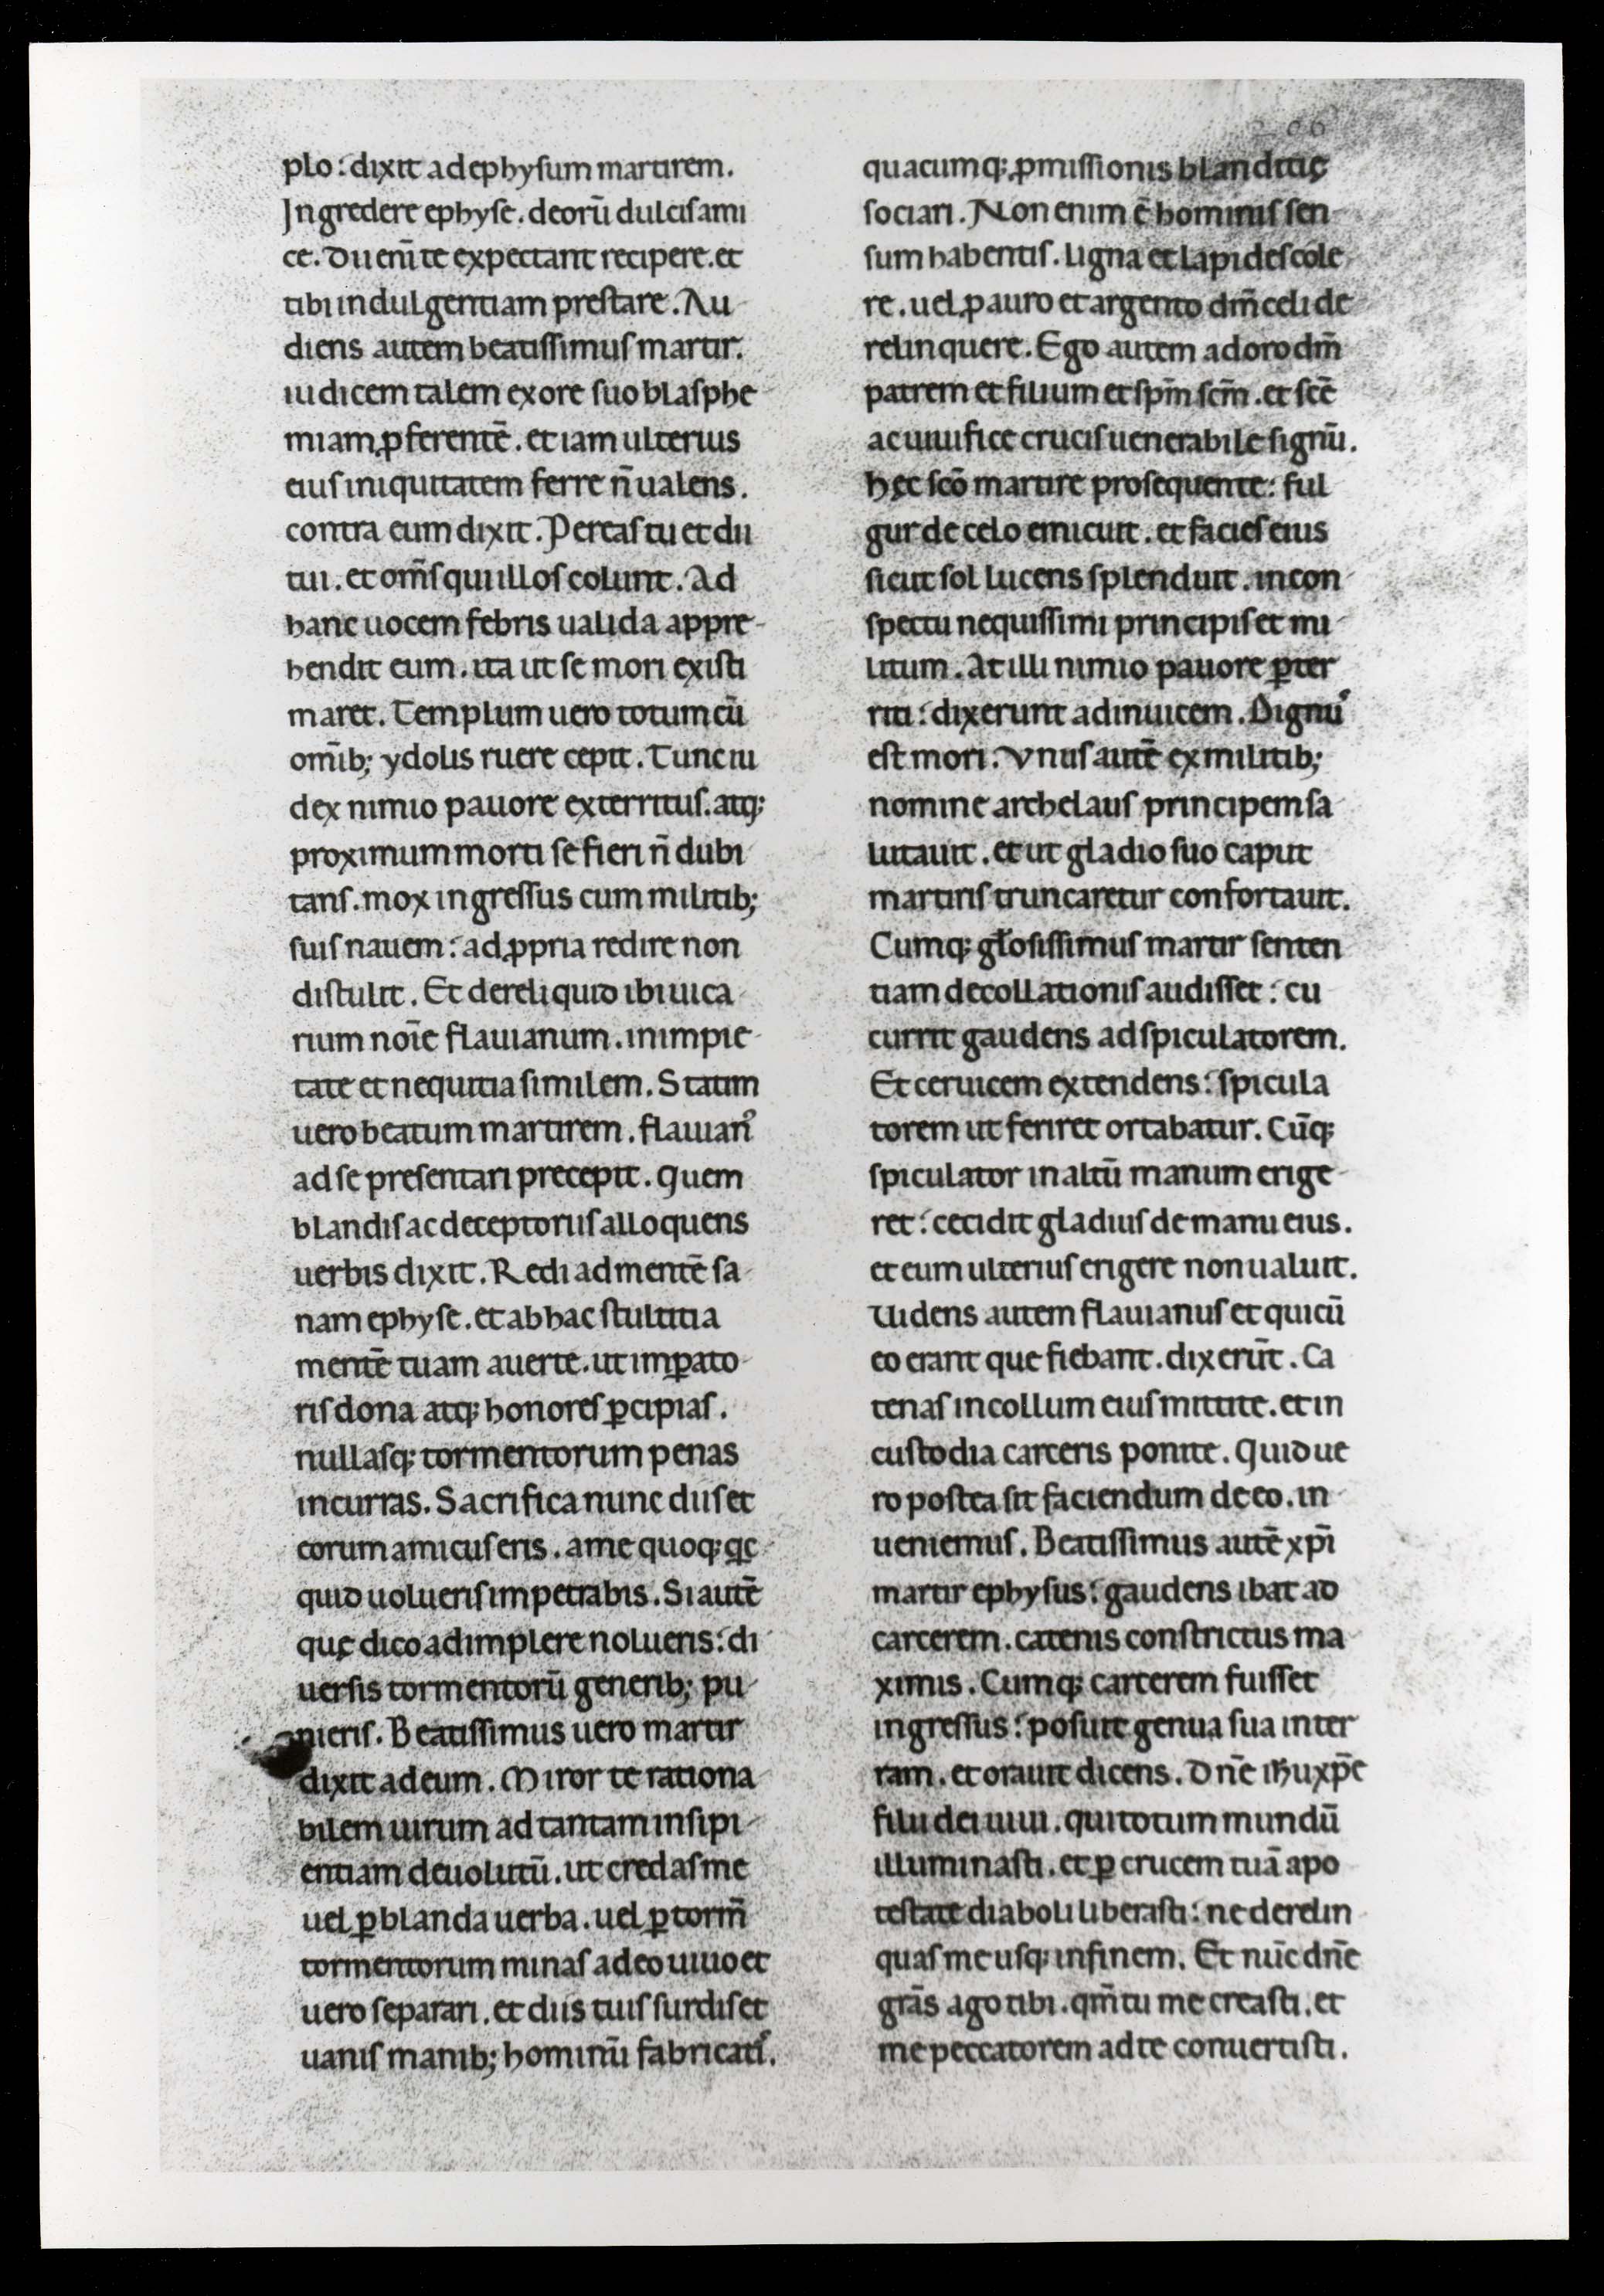 206
plo: dixit ad ephysum martirem.
Ingredere ephyse. deorū dulcis ami
ce. Dii eni te expectant recipere. et
tibi indulgentiam prestare. Au-
diens autem beatissimus martir.
iudicem talem ex ore suo blasphe-
miam ꝓferentē. et iam ulterius
eius iniquitatem ferre n̄ ualens.
contra eum dixit. Pereas tu et dii
tui. et om̄s qui illos colunt. Ad
hanc uocem febris ualida appre-
hendit eum. ita ut se mori existi
maret. Templum uero totum cū
om̄ib; ydolis ruere cepit. Tunc iu
dex nimio pauore exterritus. atq;
proximum morti se fieri n̄ dubi
tans. mox ingressus cum militib;
suis nauem: ad ꝓpria redire non
distulit. Et dereliquid ibi uica-
rium noīe flauianum. in impie-
tate et nequitia similem. Statim
uero beatum martirem. flauianꝰ
ad se presentari precepit. Quem
blandis ac deceptoriis alloquens
uerbis dixit. Redi ad mentē sa-
nam ephyse. et ab hac stultitia
mentē tuam auerte. ut imꝑato-
ris dona atq; honores ꝑcipias.
nullasq; tormentorum penas
incurras. Sacrifica nunc diis et
eorum amicus eris. a me quoq; qc-
quid uolueris impetrabis. Si autē
quę dico adimplere nolueris: di-
uersis tormentorū generib; pu-
nieris. Beatissimus uero martir
dixit ad eum. Miror te rationa-
bilem uirum ad tantam insipi-
entiam deuolutū. ut credas me
uel ꝑ blanda uerba. uel ꝑ torm̄
tormentorum minas a deo uiuo et
uero separari. et diis tuis surdis et
uanis manib; hominū fabricatis.
quacumq; ꝓmissionis blanditię
sociari. Non enim ē hominis sen-
sum habentis. ligna et lapides cole-
re. uel ꝓ auro et argento dm̄ celi de
relinquere. Ego autem adoro dm̄
patrem et filium et spm̄ scm̄. et scē
ac uiuifice crucis uenerabile signū.
hęc scō martire prosequente: ful
gur de celo emicuit. et facies eius
sicut sol lucens splenduit. in con-
spectu nequissimi principis et mi-
litum. At illi nimio pauore ꝑter
riti: dixerunt adinuicem. Dignus
est mori. Vnus autē ex militib;
nomine archelaus principem sa-
lutauit. et ut gladio suo caput
martiris truncaretur confortauit.
Cumq; głosissimus martir senten
tiam decollationis audisset: cu
currit gaudens ad spiculatorem.
Et ceruicem extendens: spicula
torem ut feriret ortabatur. Cūq;
spiculator in altū manum erige-
ret: cecidit gladius de manu eius.
et eum ulterius erigere non ualuit.
Uidens autem flauianus et qui cū
eo erant que fiebant. dixerūt. Ca
tenas in collum eius mittite. et in
custodia carceris ponite. Quid ue
ro postea sit faciendum de eo. in-
ueniemus. Beatissimus autē xpī
martir ephysus: gaudens ibat ad
carcerem. catenis constrictus ma-
ximis. Cumq; carcerem fuisset
ingressus: posuit genua sua in ter
ram. et orauit dicens. Dn̄e ihu xp̄e
filii dei uiui. qui totum mundū
illuminasti. et ꝑ crucem tuā a po
testate diaboli liberasti: ne derelin-
quas me usq; in finem. Et nūc dn̄e
grās ago tibi. qm̄ tu me creasti. et
me peccatorem ad te conuertisti.